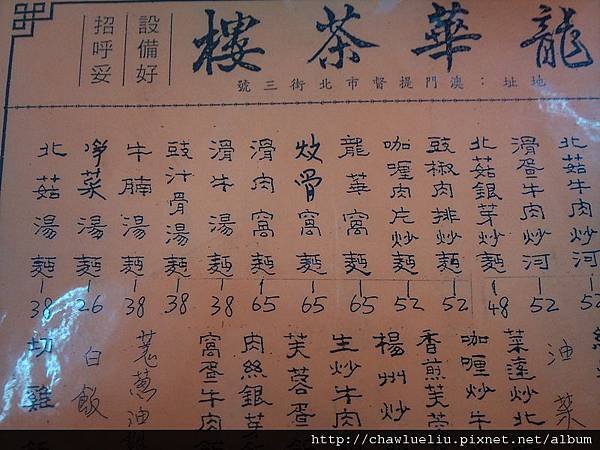 龍華茶樓
設備好
招呼妥
地址：澳門提督市北街三號
北菇牛肉炒河
滑蛋牛肉炒河 52
北菇銀芽炒麵 48
豉椒肉排炒麵 52
咖喱肉片炒麵 52
龍華窩麵 65
炆骨窩麵 65
滑肉窩麵 65
滑牛湯麵 38
豉汁骨湯麵 38
牛腩湯麵 38
淨菜湯麵 26
北菇湯麵 38
油菜
菜遠炒北
咖喱炒牛
香煎芙蓉
楊州炒
生炒牛肉
芙蓉蛋
肉絲銀芽
窩蛋牛肉飯
白飯
切雞
http://chawlueliu.pixnet.net/album